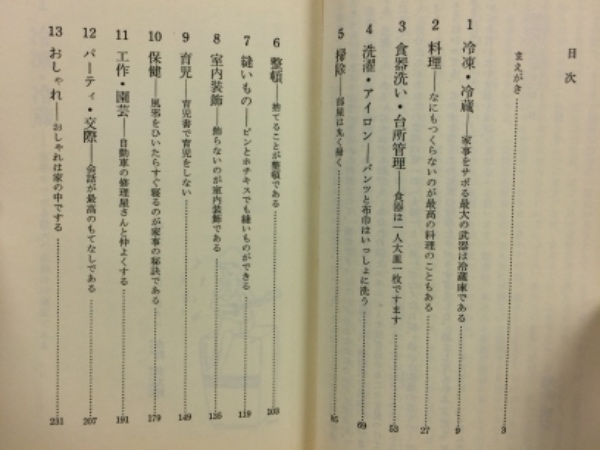 目次
まえがき……3
1 冷凍・冷蔵——家事をサボる最大の武器は冷蔵庫である……9
2 料理——なにもつくらないのが最高の料理のこともある……27
3 食器洗い・台所管理——食器は一人大皿一枚ですます……53
4 洗濯・アイロン——パンツと布巾はいっしょに洗う……69
5 掃除——部屋は丸く掃く……85
6 整頓——捨てることが整頓である……103
7 縫いもの——ピンとホチキスでも縫いものができる……119
8 室内装飾——飾らないのが室内装飾である……135
9 育児——育児書で育児をしない……149
10 保健——風邪をひいたらすぐ寝るのが家事の秘訣である……179
11 工作・園芸——自動車の修理屋さんと仲よくする……191
12 パーティ・交際——会話が最高のもてなしである……207
13 おしゃれ——おしゃれは家の中でする……231